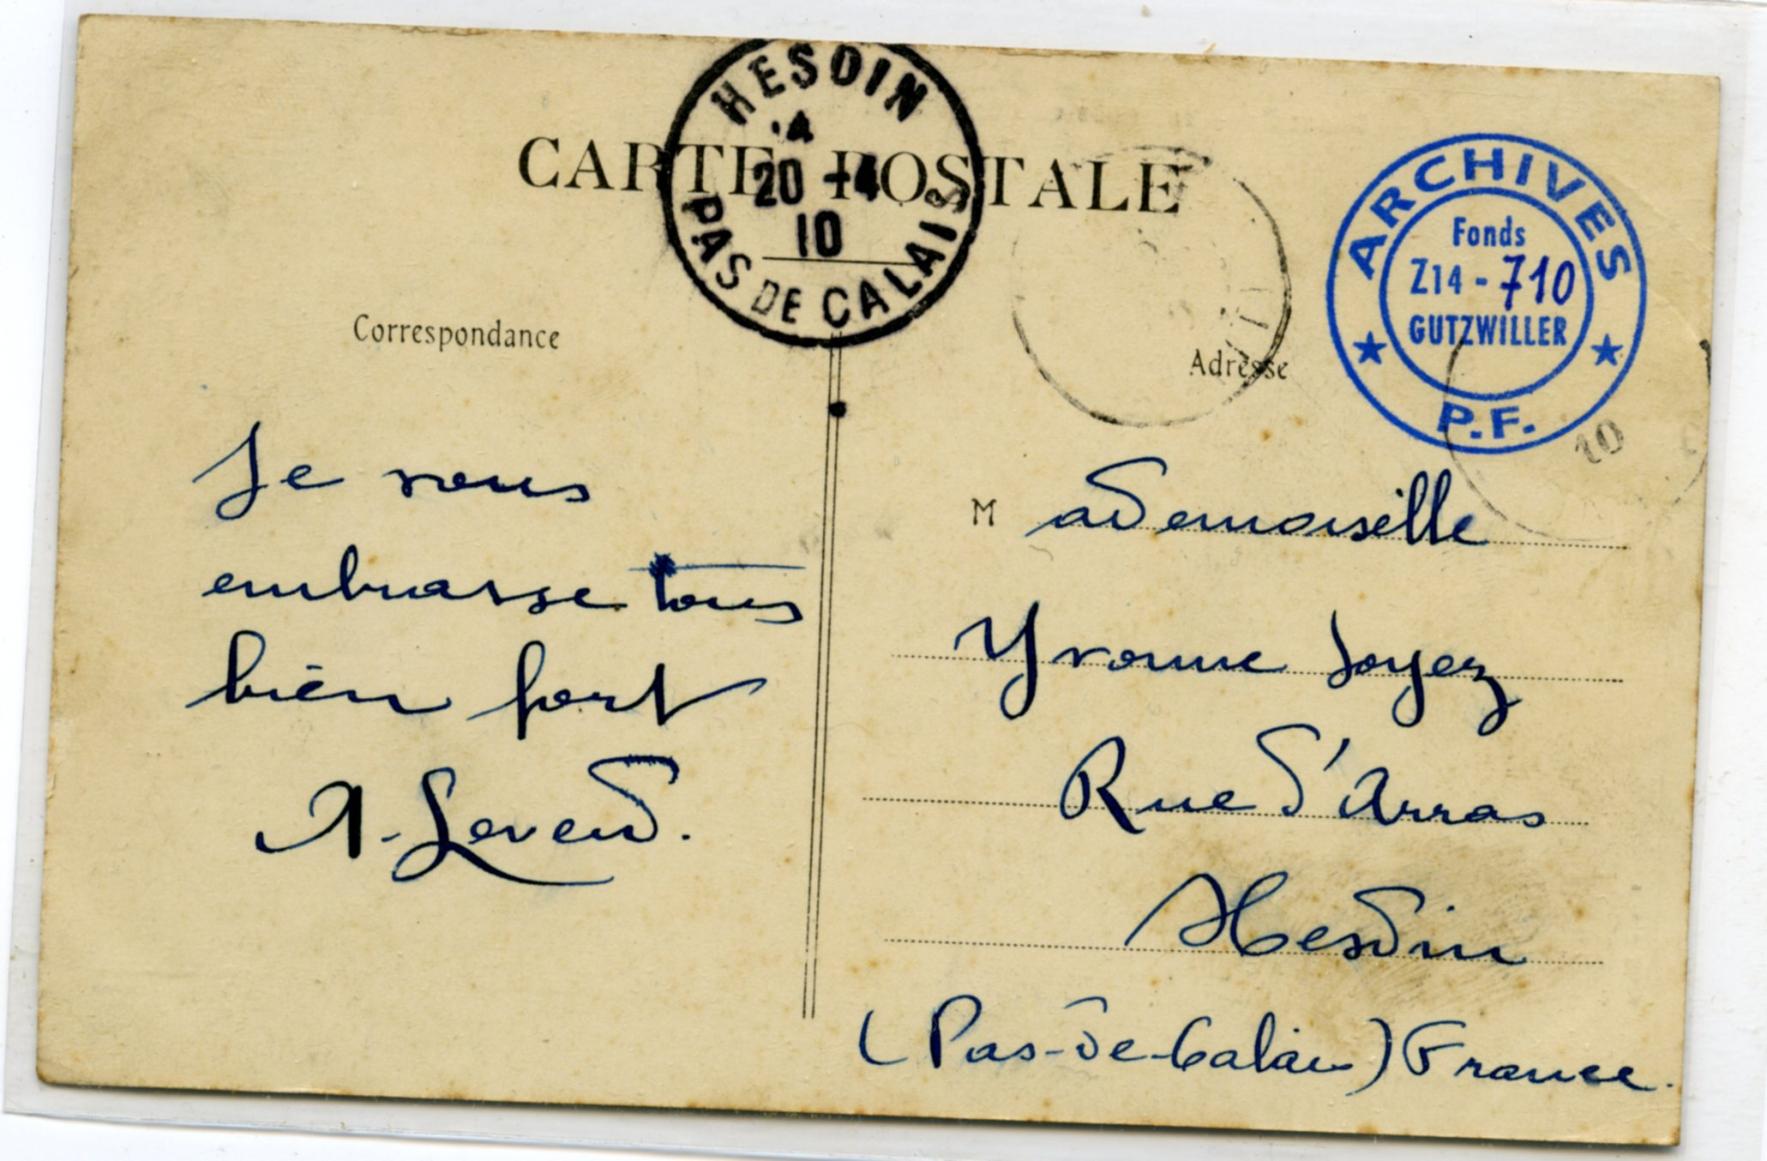 CARTE POSTALE
HESDIN
20 -4
10
PAS DE CALAIS
ARCHIVES
Fonds
Z14 - 710
GUTZWILLER
P.F.
10
Correspondance
Adresse
Je vous
embrasse tous
bien fort
A. Levend.
Mademoiselle
Yvonne Soyez
Rue d'Arras
Hesdin
(Pas-de-Calais) France.